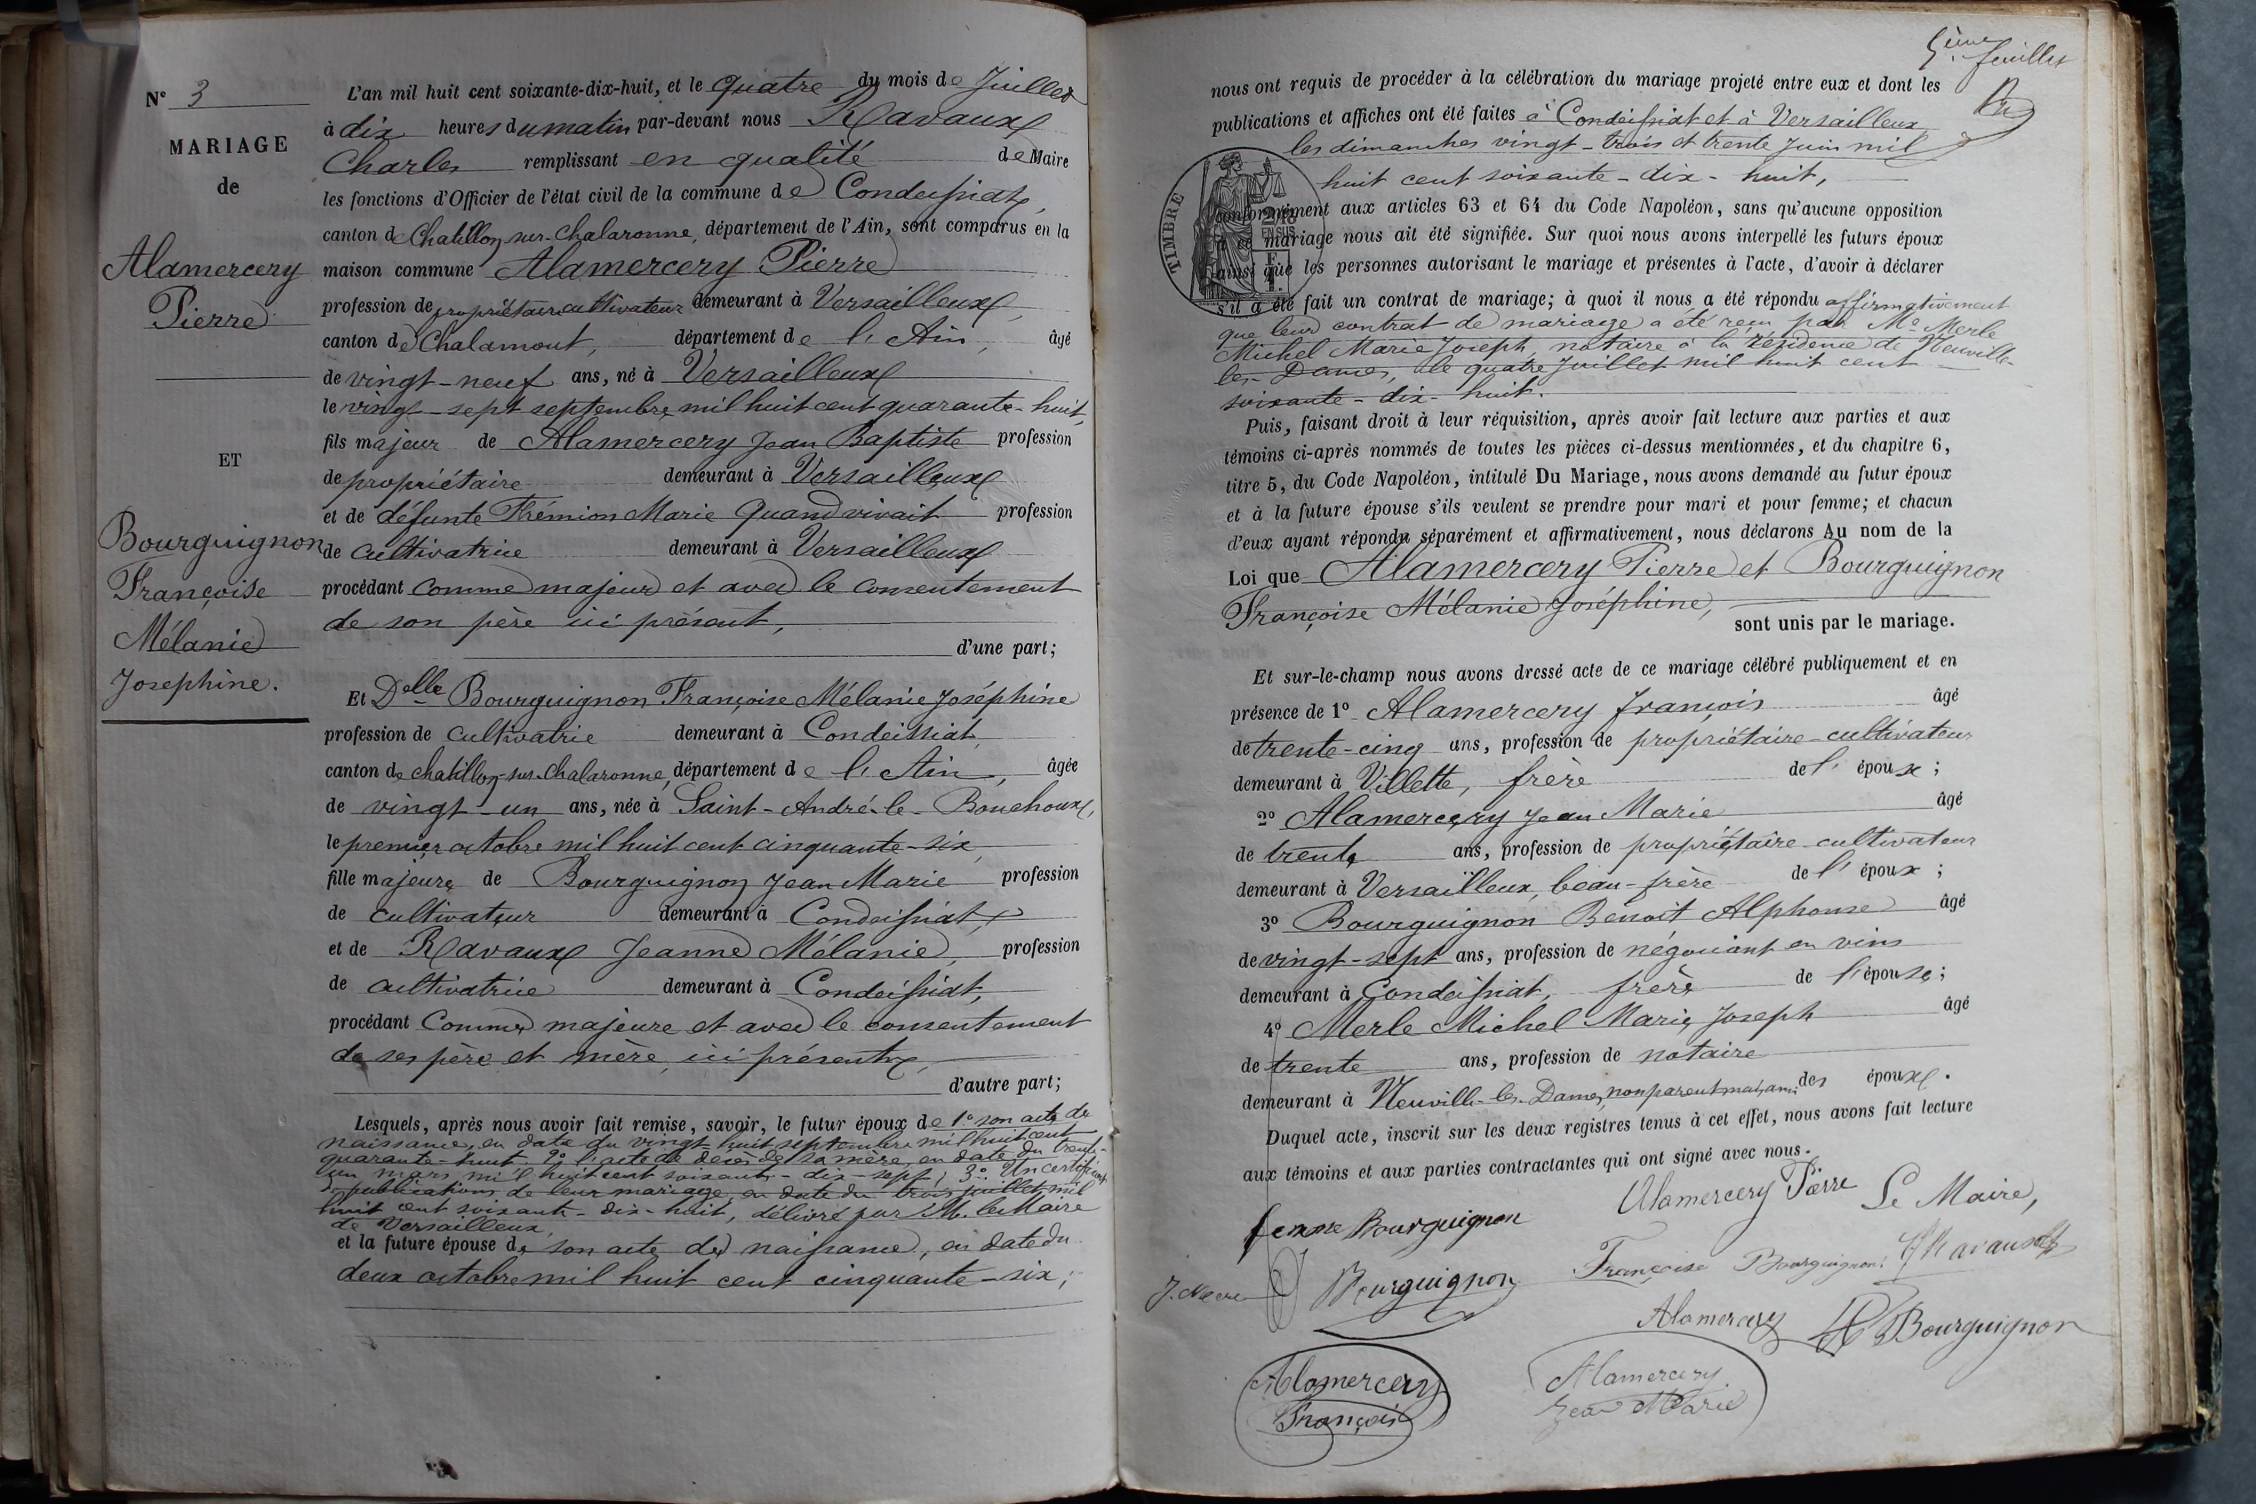 N° 3
MARIAGE
de
Alamercery
Pierre
ET
Bourguignon
Françoise
Mélanie
Josephine.
L'an mil huit cent soixante-dix-huit, et le quatre du mois de Juillet
à dix heures du matin par-devant nous Ravaux
Charles remplissant en qualité de Maire
les fonctions d'Officier de l'état civil de la commune de Condeissiat,
canton de Chatillon-sur-Chalaronne, département de l'Ain, sont comparus en la
maison commune Alamercery Pierre
profession de propriétaire cultivateur demeurant à Versailleux,
canton de Chalamont, département de l'Ain, âgé
de vingt-neuf ans, né à Versailleux
le vingt-sept septembre mil huit cent quarante-huit,
fils majeur de Alamercery Jean Baptiste profession
de propriétaire demeurant à Versailleux
et de défunte Frémion Marie quand vivait profession
de cultivatrice demeurant à Versailleux
procédant comme majeur et avec le consentement
de son père ici présent,
d'une part;
Et Delle Bourguignon Françoise Mélanie Joséphine
profession de cultivatrice demeurant à Condeissiat
canton de chatillon-sur-Chalaronne, département de l'Ain, âgée
de vingt-un ans, née à Saint-André-le-Bouchoux,
le premier octobre mil huit cent cinquante-six,
fille majeure de Bourguignon Jean Marie profession
de cultivateur demeurant à Condeissiat,
et de Ravaux Jeanne Mélanie, profession
de cultivatrice demeurant à Condeissiat,
procédant comme majeure et avec le consentement
de ses père et mère, ici présents,
d'autre part;
Lesquels, après nous avoir fait remise, savoir, le futur époux de 1° son acte de
naissance, en date du vingt-huit septembre mil huit cent
quarante-huit. 2° l'acte de décès de sa mère, en date du trente-
un mars mil huit cent soixante-dix-sept; 3° Un certificat
de publications de leur mariage, en date du trois juillet mil
huit cent soixante-dix-huit, délivré par M. le Maire
de Versailleux,
et la future épouse de son acte de naissance, en date du
deux octobre mil huit cent cinquante-six;
5ème feuillet
nous ont requis de procéder à la célébration du mariage projeté entre eux et dont les
publications et affiches ont été faites à Condeissiat et à Versailleux
les dimanches vingt-trois et trente Juin mil
huit cent soixante-dix-huit,
TIMBRE
2/10
EN SUS
conformément aux articles 63 et 64 du Code Napoléon, sans qu'aucune opposition
à ce mariage nous ait été signifiée. Sur quoi nous avons interpellé les futurs époux
ainsi que les personnes autorisant le mariage et présentes à l'acte, d'avoir à déclarer
s'il a été fait un contrat de mariage; à quoi il nous a été répondu affirmativement
que leur contrat de mariage a été reçu par Me Merle
Michel Marie Joseph, notaire à la résidence de Neuville-
les-Dames, le quatre Juillet mil huit cent
soixante-dix-huit.
Puis, faisant droit à leur réquisition, après avoir fait lecture aux parties et aux
témoins ci-après nommés de toutes les pièces ci-dessus mentionnées, et du chapitre 6,
titre 5, du Code Napoléon, intitulé Du Mariage, nous avons demandé au futur époux
et à la future épouse s'ils veulent se prendre pour mari et pour femme; et chacun
d'eux ayant répondu séparément et affirmativement, nous déclarons Au nom de la
Loi que Alamercery Pierre et Bourguignon
Françoise Mélanie Joséphine,
sont unis par le mariage.
Et sur-le-champ nous avons dressé acte de ce mariage célébré publiquement et en
présence de 1° Alamercery françois âgé
de trente-cinq ans, profession de propriétaire-cultivateur
demeurant à Villette, frère de l'époux;
2° Alamercery Jean Marie âgé
de trente ans, profession de propriétaire-cultivateur
demeurant à Versailleux, beau-frère de l'époux;
3° Bourguignon Benoit Alphonse âgé
de vingt-sept ans, profession de négociant en vins
demeurant à Condeissiat, frère de l'épouse;
4° Merle Michel Marie Joseph âgé
de trente ans, profession de notaire
demeurant à Neuville-les-Dames, non parent mais ami des époux.
Duquel acte, inscrit sur les deux registres tenus à cet effet, nous avons fait lecture
aux témoins et aux parties contractantes qui ont signé avec nous.
femme Bourguignon Alamercery Pierre Le Maire,
Bourguignon Françoise Bourguignon Ravaux
Alamercery Bourguignon
Alamercery
François
Alamercery
Jean Marie